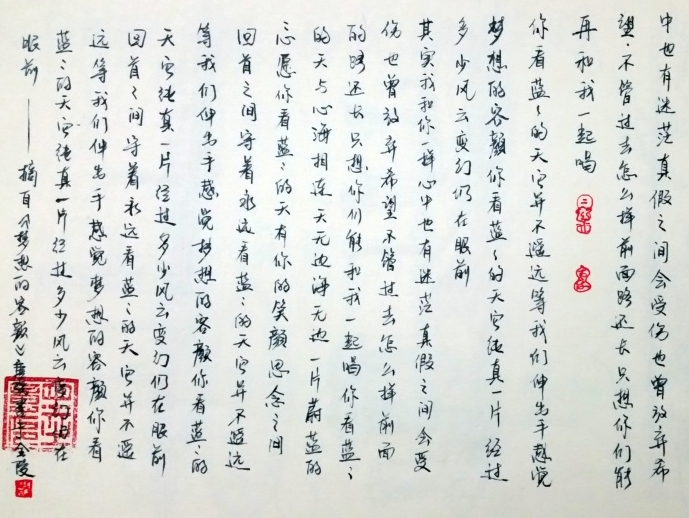 中也有迷茫真假之间会受伤也曾放弃希
望不管过去怎么样前面路还长只想你们能
再和我一起唱
你看蓝〻的天空并不遥远等我们伸出手感觉
梦想的容颜你看蓝〻的天空纯真一片经过
多少风云变幻仍在眼前
其实我和你一样心中也有迷茫真假之间会受
伤也曾放弃希望不管过去怎么样前面
的路还长只想你们能和我一起唱你看蓝〻
的天与心海相连天无边海无边一片蔚蓝的
心愿你看蓝〻的天有你的笑颜思念之间
回首之间守着永远看蓝〻的天空并不遥远
等我们伸出手感觉梦想的容颜你看蓝〻的
天空纯真一片经过多少风云变幻仍在眼前
回首之间守着永远看蓝〻的天空并不遥
远等我们伸出手感觉梦想的容颜你看
蓝〻的天空纯真一片经过多少风云变幻仍在
眼前——摘自《梦想的容颜》